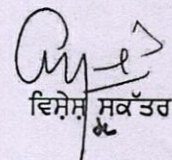 ਵਿਸ਼ੇਸ਼ ਸਕੱਤਰ